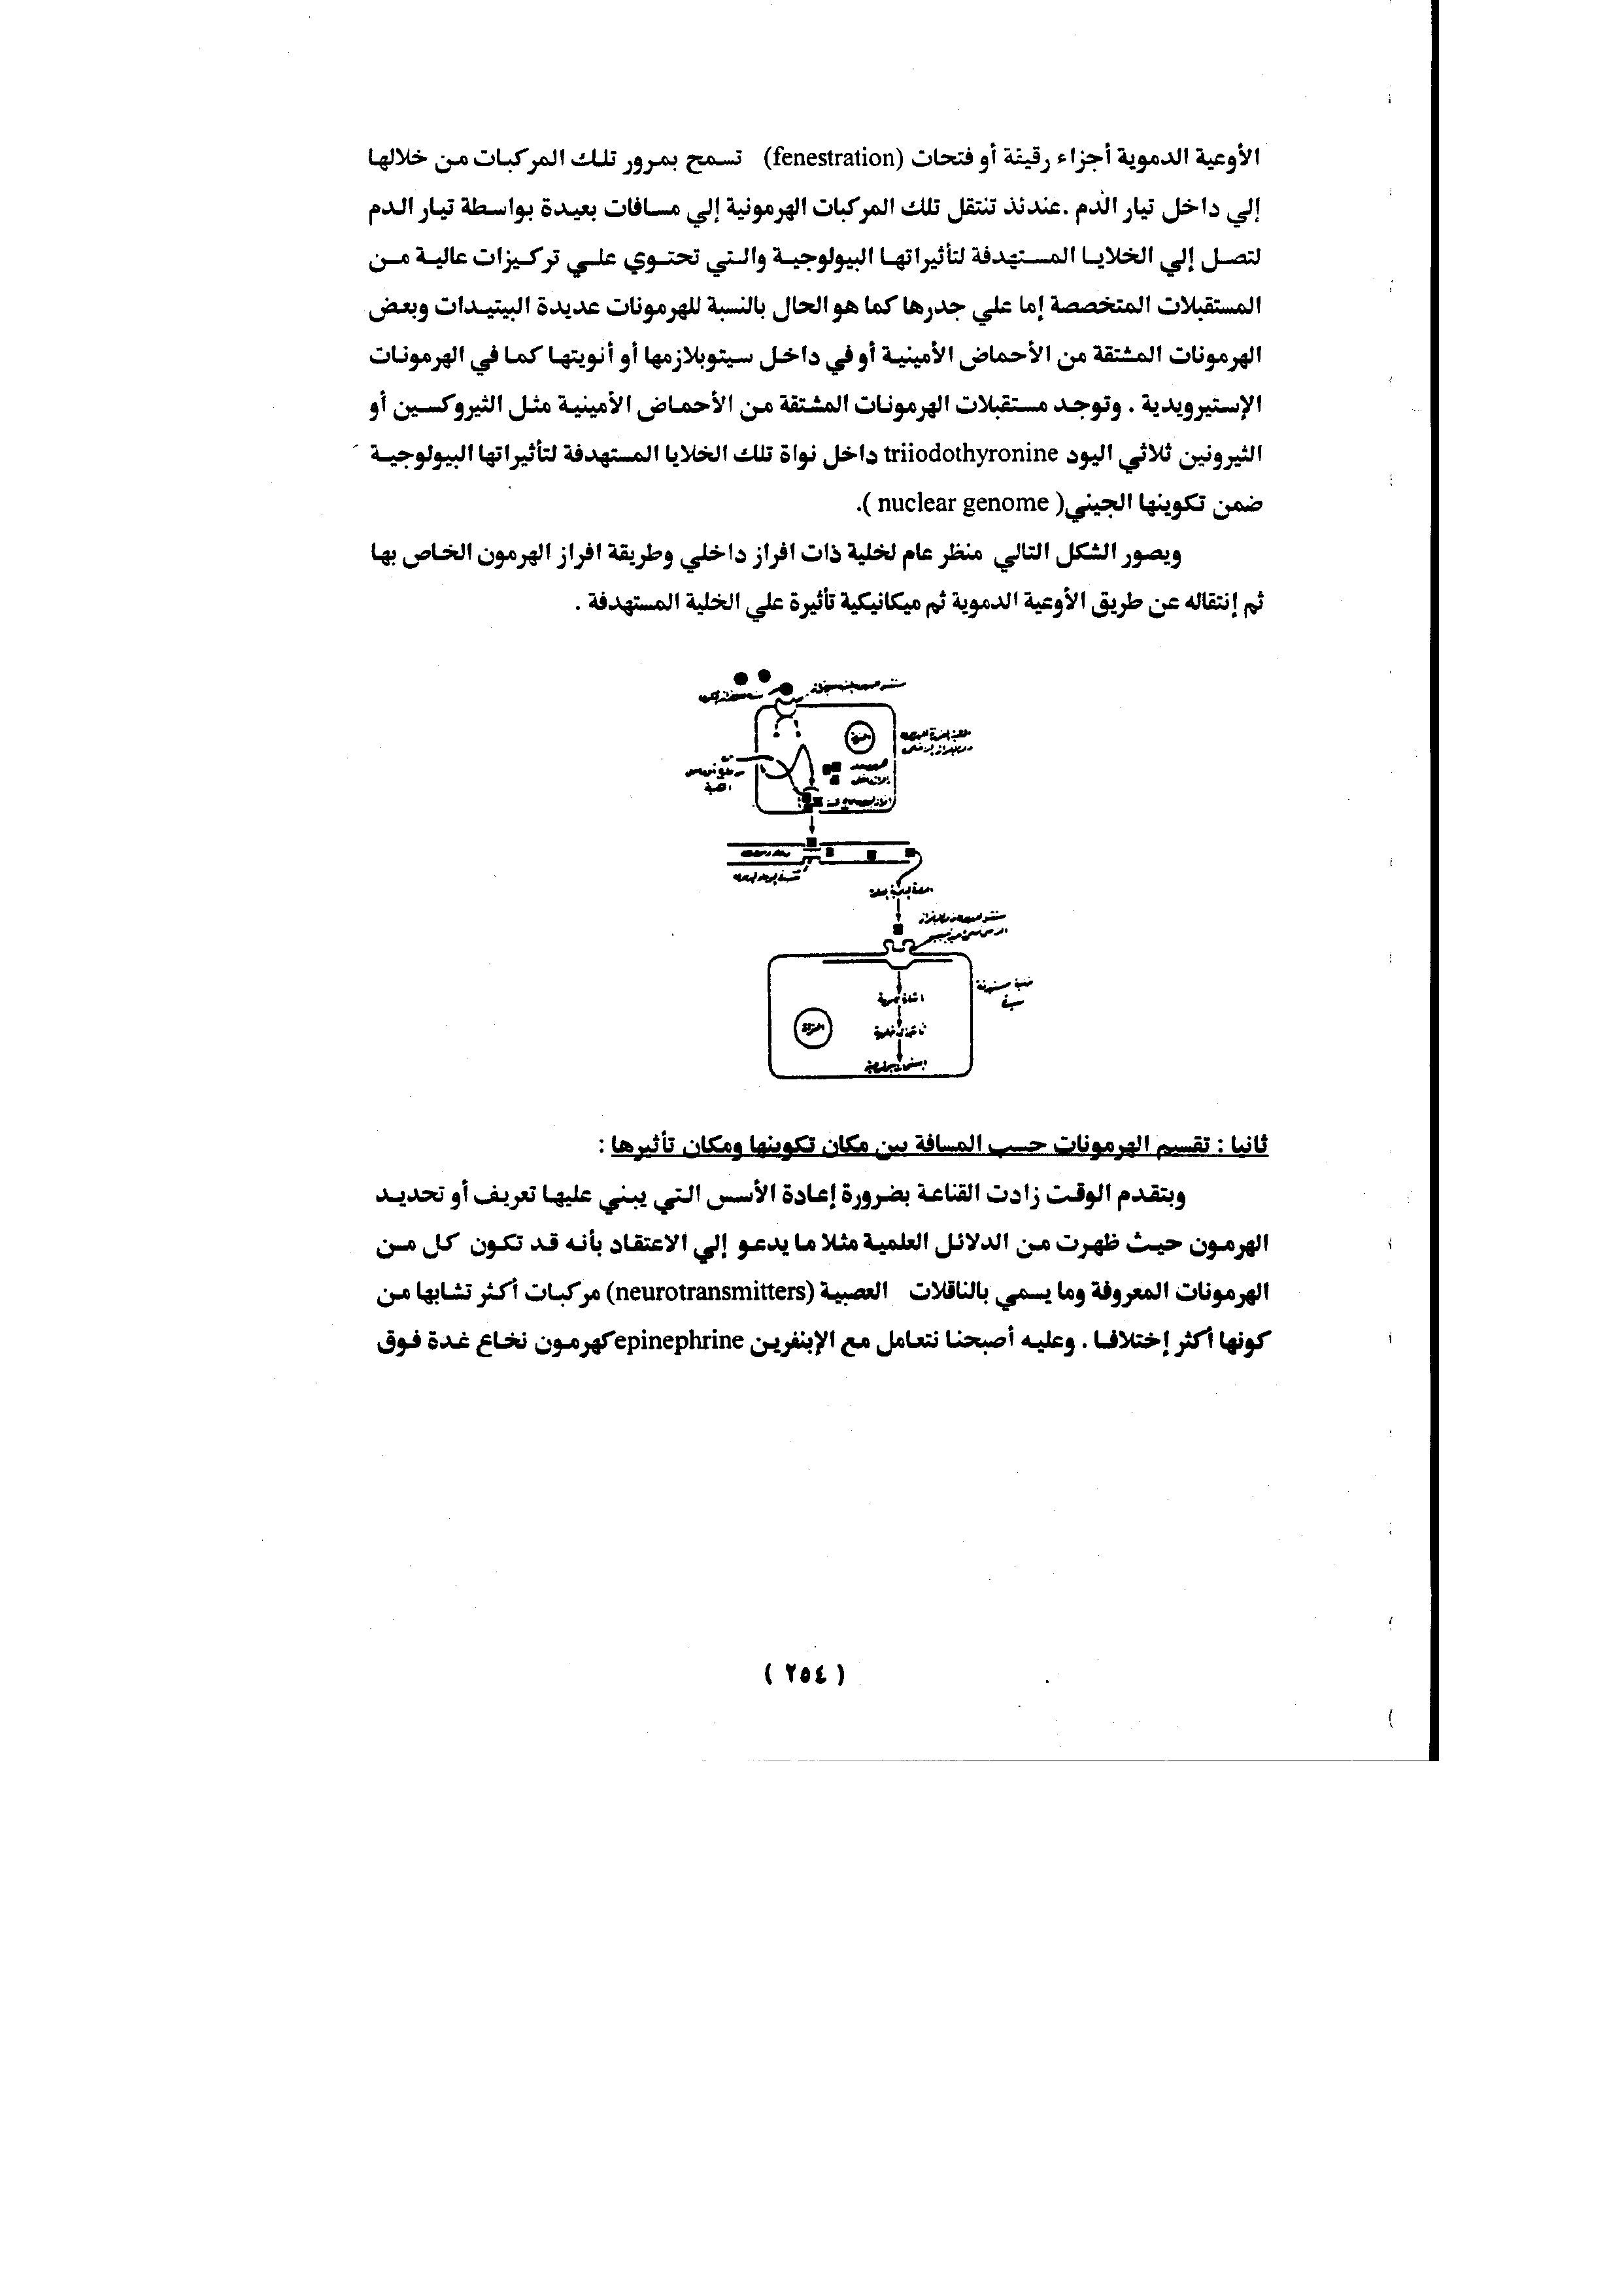 الأوعية الدموية أجزاء رقيقة أو فتحات (fenestration) تسمح بمرور تلك المركبات من خلالها
إلي داخل تيار الدم .عندئذ تنتقل تلك المركبات الهرمونية إلي مسافات بعيدة بواسطة تيار الدم
لتصل إلي الخلايا المستهدفة لتأثيراتها البيولوجية والتي تحتوي علي تركيزات عالية من
المستقبلات المتخصصة إما علي جدرها كما هو الحال بالنسبة للهرمونات عديدة الببتيدات وبعض
الهرمونات المشتقة من الأحماض الأمينية أو في داخل سيتوبلازمها أو أنويتها كما في الهرمونات
الإستيرويدية . وتوجد مستقبلات الهرمونات المشتقة من الأحماض الأمينية مثل الثيروكسين أو
الثيرونين ثلاثي اليود triiodothyronine داخل نواة تلك الخلايا المستهدفة لتأثيراتها البيولوجية
ضمن تكوينها الجيني( nuclear genome ).
ويصور الشكل التالي منظر عام لخلية ذات افراز داخلي وطريقة افراز الهرمون الخاص بها
ثم إنتقاله عن طريق الأوعية الدموية ثم ميكانيكية تأثيرة علي الخلية المستهدفة .
النواة
النواة
ثانيا : تقسيم الهرمونات حسب المسافة بين مكان تكوينها ومكان تأثيرها :
وبتقدم الوقت زادت القناعة بضرورة إعادة الأسس التي يبني عليها تعريف أو تحديد
الهرمون حيث ظهرت من الدلائل العلمية مثلا ما يدعو إلي الاعتقاد بأنه قد تكون كل من
الهرمونات المعروفة وما يسمي بالناقلات العصبية (neurotransmitters) مركبات أكثر تشابها من
كونها أكثر إختلافا . وعليه أصبحنا نتعامل مع الإبنفرين epinephrine كهرمون نخاع غدة فوق
( ٢٥٤ )